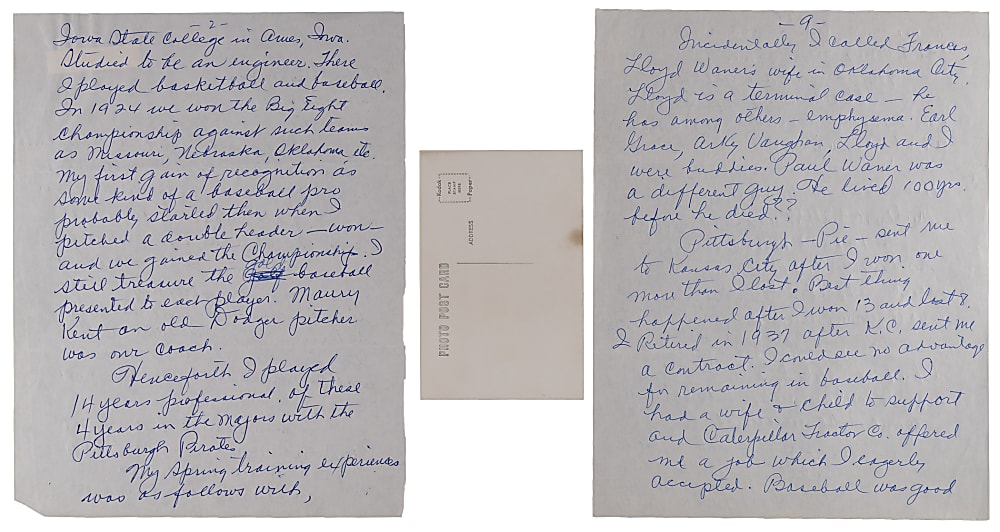 -2-
Iowa State College in Ames, Iowa.
Studied to be an engineer. There
I played basketball and baseball.
In 1924 we won the Big Eight
Championship against such teams
as Missouri, Nebraska, Oklahoma etc.
My first gain of recognition as
some kind of a baseball pro
probably started then when I
pitched a double header - won -
and we gained the Championship. I
still treasure the gold baseball
presented to each player. Maury
Kent an old Dodger pitcher
was our coach.
Henceforth I played
14 years professional, of these
4 years in the Majors with the
Pittsburgh Pirates
My spring training experiences
was as follows with,
Kodak
PLACE
STAMP
HERE
Paper
ADDRESS
PHOTO POST CARD
-9-
Incidentally I called Frances,
Lloyd Waner's wife in Oklahoma City.
Lloyd is a terminal case - he
has among others - emphysema. Earl
Grace, Arky Vaughan, Lloyd and I
were buddies. Paul Waner was
a different guy. He lived 100 yrs.
before he died??
Pittsburgh - Pie - sent me
to Kansas City after I won one
more than I lost. Best thing
happened after I won 13 and lost 8.
I Retired in 1937 after K.C. sent me
a contract. I could see no advantage
for remaining in baseball. I
had a wife & child to support
and Caterpillar Tractor Co. offered
me a job which I eagerly
accepted. Baseball was good